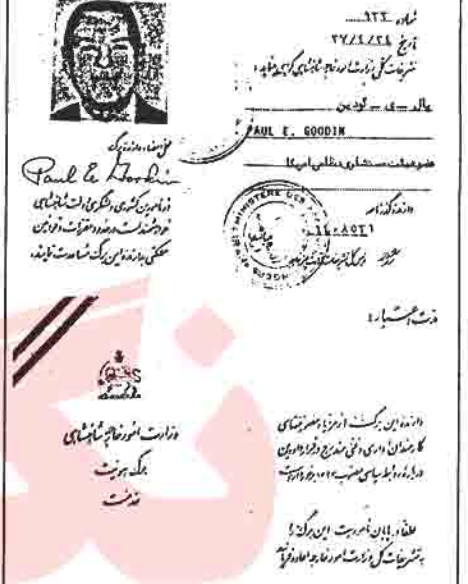 شماره ۹۲۲
تاریخ
تشریفات کل وزارت امور خارجه شاهنشاهی گواهی مینماید :
پال _ ئی _ گودین
PAUL E. GOODIN
عضو هیئت مستشاری نظامی امریکا
دارنده گذرنامه
رئیس کل تشریفات
MINISTERE DES
محل امضاء دارنده برگ
Paul E Goodin
از مأمورین کشوری و لشگری دولت شاهنشاهی
خواهشمند است در حدود مقررات و قوانین
ممکنه بدارنده این برگ مساعدت نمایند.
مدت اعتبار :
وزارت امور خارجه شاهنشاهی
برگ هویت
دارنده این برگ از مزایا و مصونیتهای
کارمندان اداری و فنی مندرج در قرارداد وین
درباره روابط سیاسی برخوردار است
لطفا در پایان مأموریت این برگ را
به تشریفات کل وزارت امور خارجه اعاده فرمائید